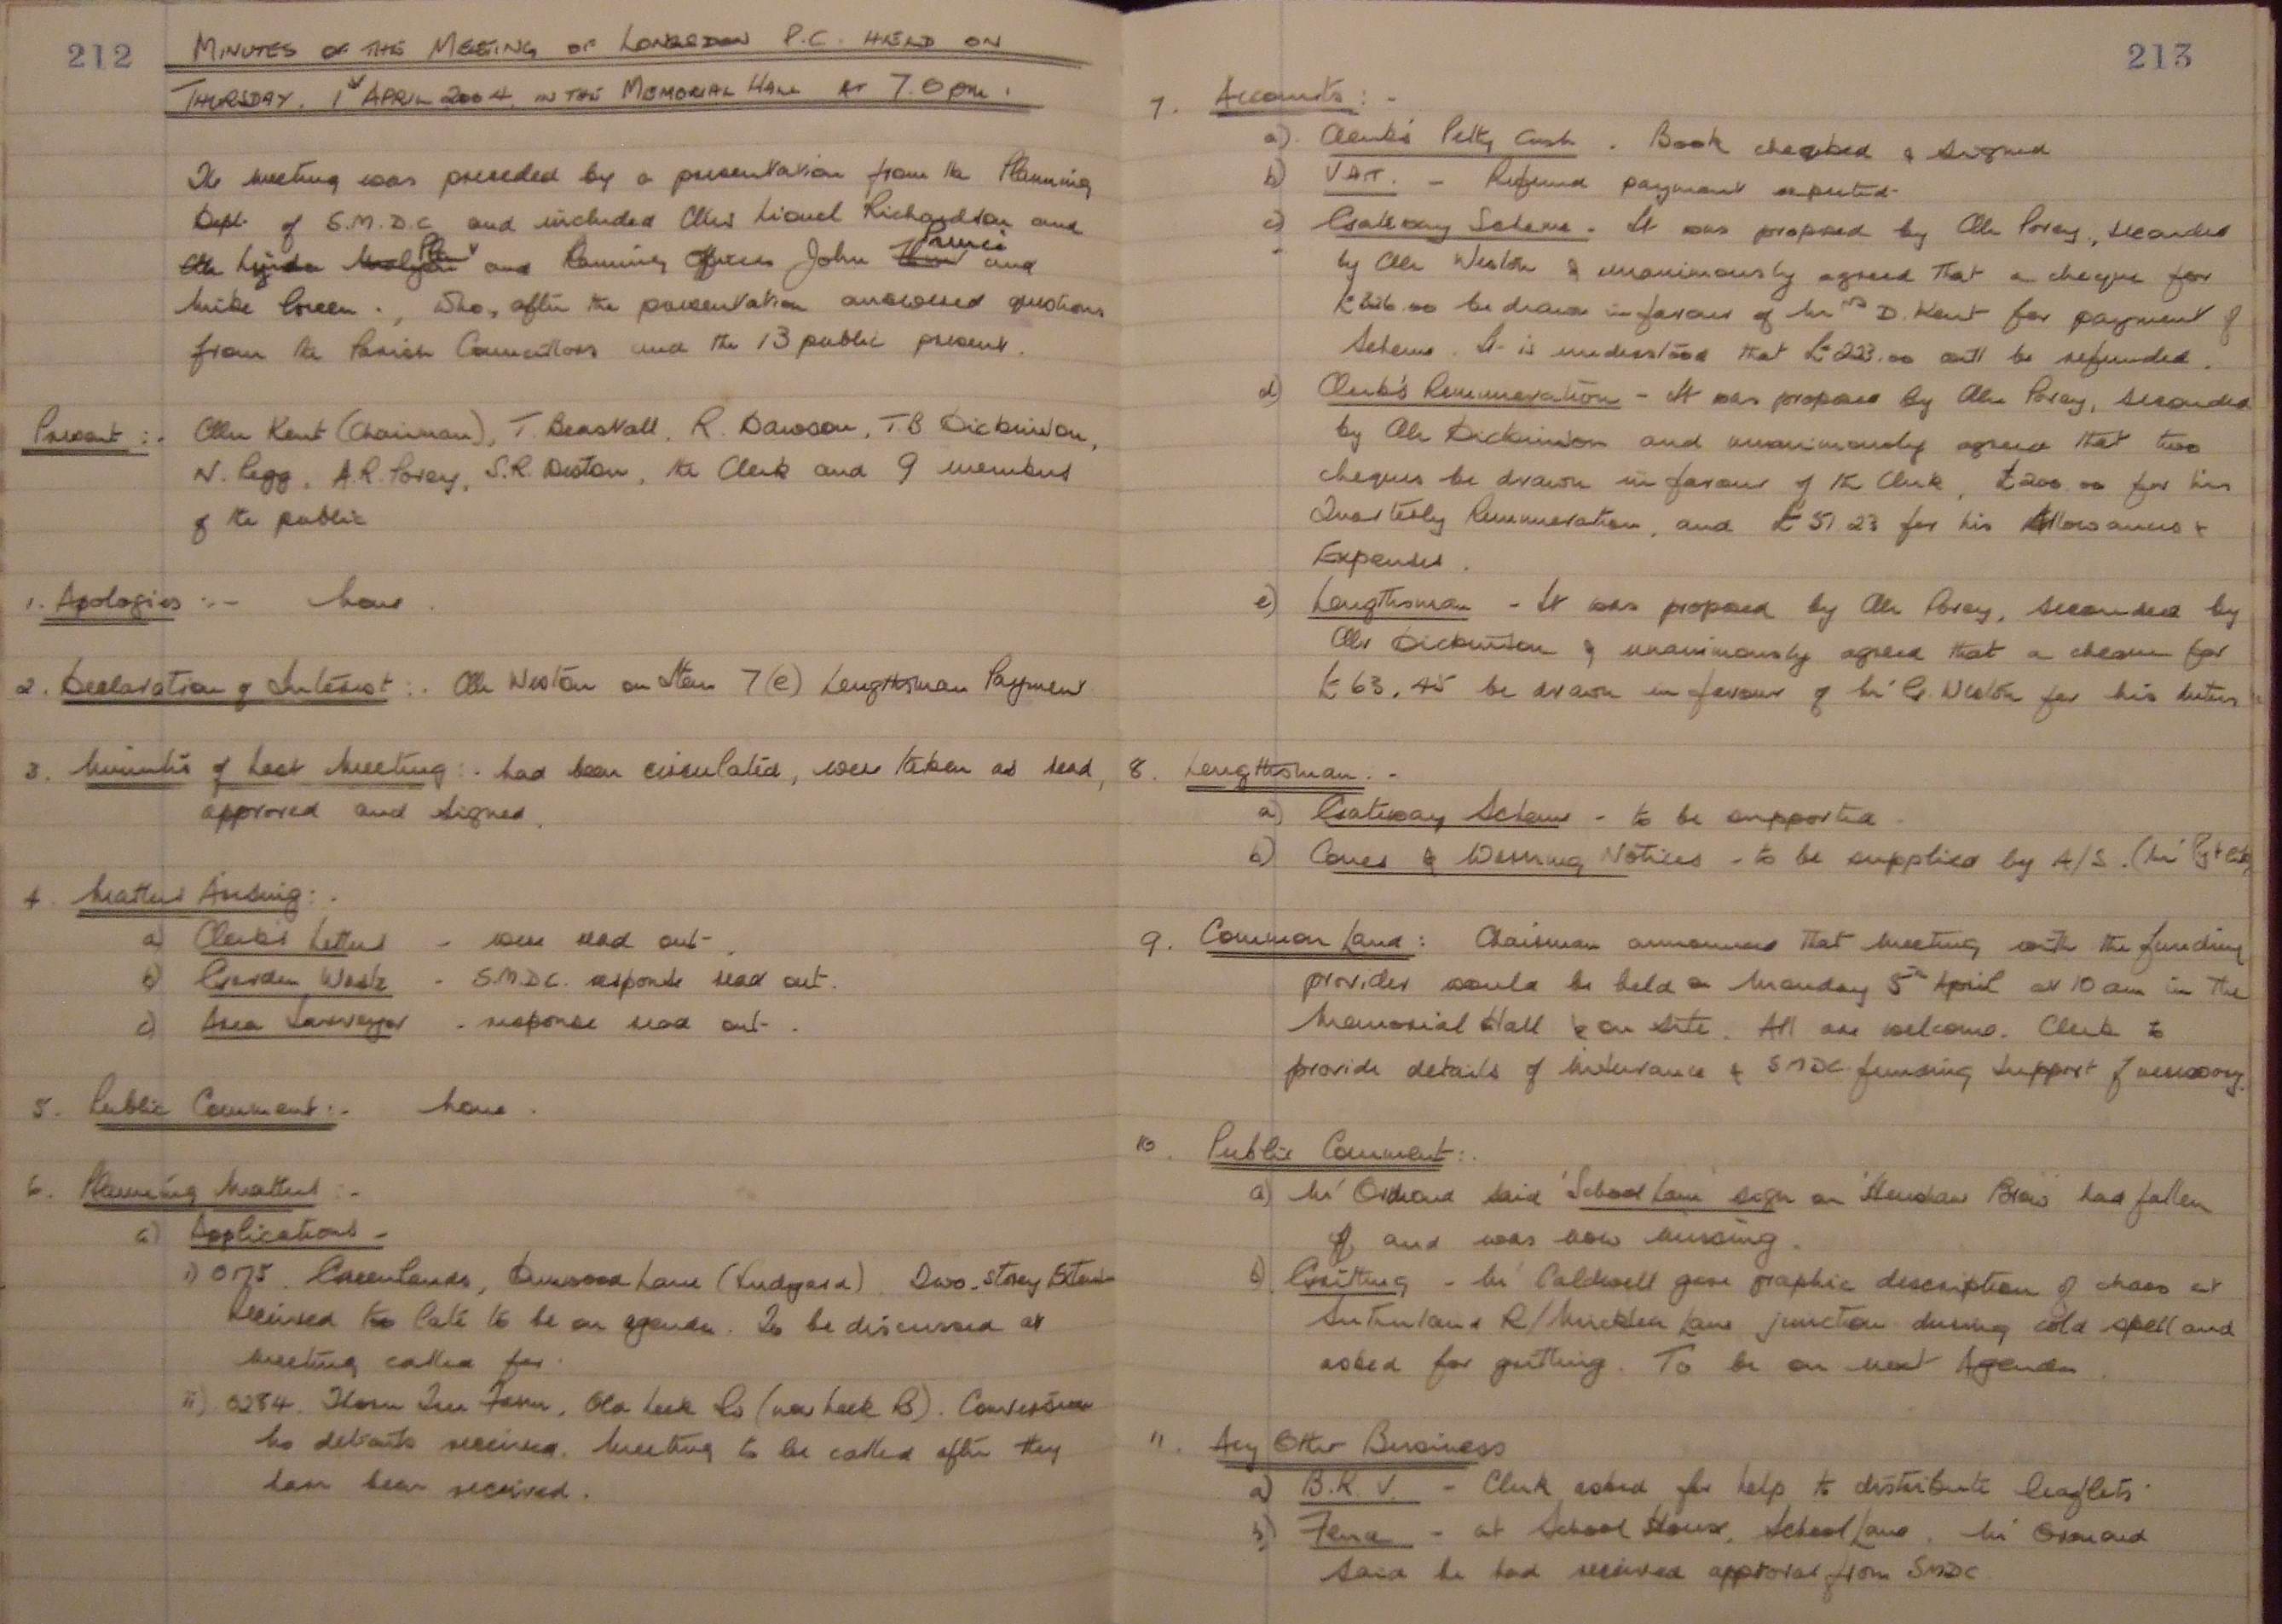 212
MINUTES OF THE MEETING OF LONGSDON P.C. HELD ON
THURSDAY. 1st APRIL 2004. IN THE MEMORIAL HALL AT 7.0 pm.
The meeting was preceded by a presentation from the Planning
Dept. of S.M.D.C and included Cllrs Lionel Richardson and
Cllr Lynda and Planning Officers John Prince and
Mike Green., who, after the presentation answered questions
from the Parish Councillors and the 13 public present.
Present :- Cllrs Kent (Chairman), T. Bensvall, R. Dawson, T.B Dickinson,
N. Pegg, A.R. Povey, S.R. Weston, the Clerk and 9 members
of the public
1. Apologies :- None.
2. Declaration of Interest :- Cllr Weston on Item 7(e) Lengthsman Payment
3. Minutes of Last Meeting :- had been circulated, were taken as read,
approved and signed.
4. Matters Arising :-
a) Clerk's Letters - were read out.
b) Garden Waste - S.M.D.C. response read out.
c) Area Surveyor - response read out.
5. Public Comment :- None.
6. Planning Matters :-
a) Applications -
i) 0175. Greenlands, Dunwood Lane (Ludgard). Two-Storey Extens
received too late to be on agenda. To be discussed at
meeting called for.
ii) 0284. Thorn Tree Farm, Old Leek Rd (new Leek Rd). Conversion
No details received. Meeting to be called after they
have been received.
213
7. Accounts :-
a) Clerk's Petty Cash. Book checked & signed
b) VAT. - Refund payment expected.
c) Gateway Scheme - It was proposed by Cllr Povey, seconded
by Cllr Weston & unanimously agreed that a cheque for
£326.00 be drawn in favour of Mrs D. Kent for payment of
Scheme. It is understood that £223.00 will be refunded.
d) Clerk's Remuneration - It was proposed by Cllr Povey, seconded
by Cllr Dickinson and unanimously agreed that two
cheques be drawn in favour of the Clerk, £200.00 for his
Quarterly Remuneration, and £51.23 for his Allowances &
Expenses.
e) Lengthsman - It was proposed by Cllr Povey, seconded by
Cllr Dickinson & unanimously agreed that a cheque for
£63.45 be drawn in favour of Mr G. Weston for his duties
8. Lengthsman. -
a) Gateway Scheme - to be supported.
b) Cones & Warning Notices - to be supplied by A/S. (Mr
9. Common Land : Chairman announced that meeting with the funding
provider would be held on Monday 5th April at 10 am in the
Memorial Hall & on site. All are welcome. Clerk to
provide details of insurance & SMDC funding support if necessary.
10. Public Comment :-
a) Mr Ormond said 'School Lane' sign on 'Henshaw Brow' had fallen
off and was now missing.
b) Gritting - Mr Caldwell gave graphic description of chaos at
Sutherland R/Micklea Lane junction during cold spell and
asked for gritting. To be on next Agenda.
11. Any Other Business
a) B.K.V. - Clerk asked for help to distribute leaflets.
b) Fence - at School House, School Lane. Mr Ormond
said he had received approval from SMDC